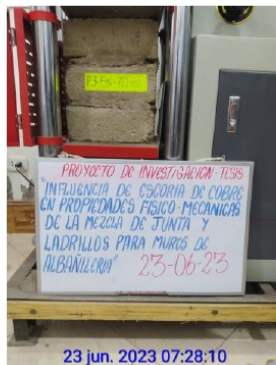 PROYECTO DE INVESTIGACION-TESIS
"INFLUENCIA DE ESCORIA DE COBRE
EN PROPIEDADES FISICO-MECANICAS
DE LA MEZCLA DE JUNTA Y
LADRILLOS PARA MUROS DE
ALBAÑILERIA" 23-06-23
23 jun. 2023 07:28:10